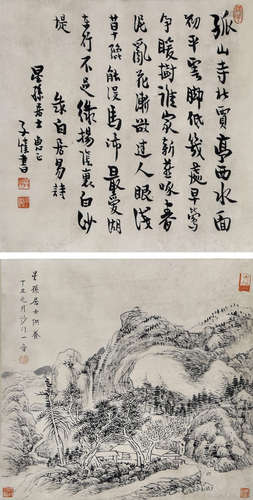 孤山寺北賈亭西水面
初平雲腳低幾處早鶯
爭暖樹誰家新燕啄春
泥亂花漸欲迷人眼淺
草纔能沒馬蹄最愛湖
東行不足綠楊陰裏白沙
堤
錄白居易詩
星孫居士惠正
子愷書
星孫居士供養
九月沙門一音